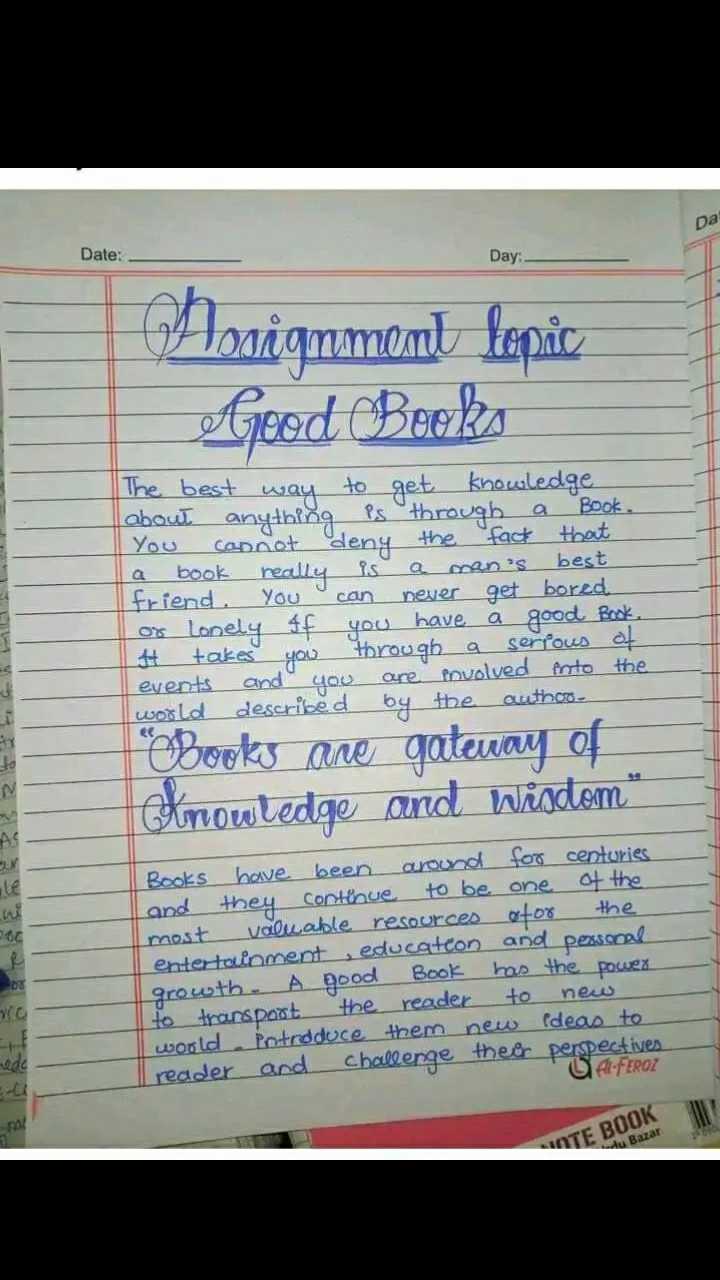 Da
Date:
Day:
Assignment topic
Good Books
The best way to get knowledge
about anything is through a Book.
You cannot deny the fact that
a book really is a man's best
friend. You can never get bored
or lonely If you have a good Book.
It takes you through a serious of
events and you are involved into the
world described by the author-
"Books are gateway of
Knowledge and wisdom"
Books have been around for centuries
and they continue to be one of the
most valuable resources for the
entertainment, education and personal
growth. A good Book has the power
to transport the reader to new
world. introduce them new ideas to
reader and challenge their perspectives
Al-FEROZ
NOTE BOOK
Bazar